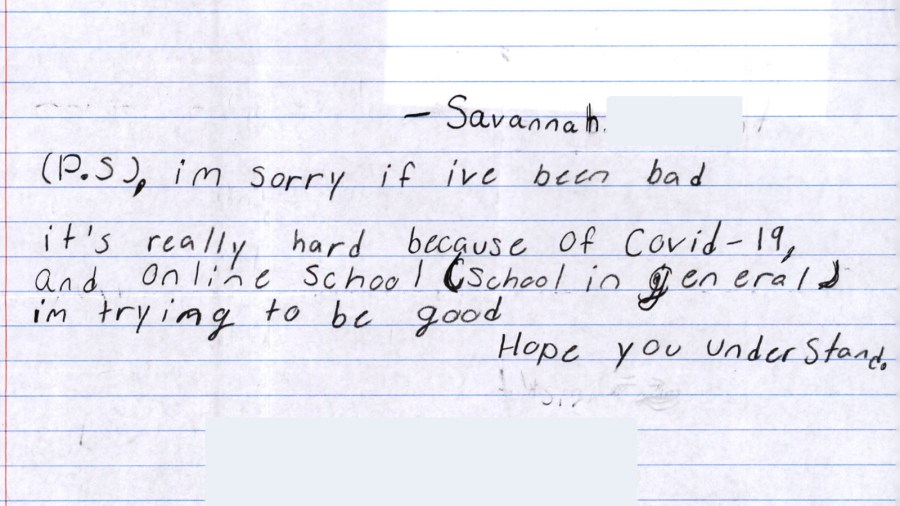 - Savannah.
(P.S), im sorry if ive been bad
it's really hard because of Covid-19,
and online school (School in general)
im trying to be good
Hope you understand.